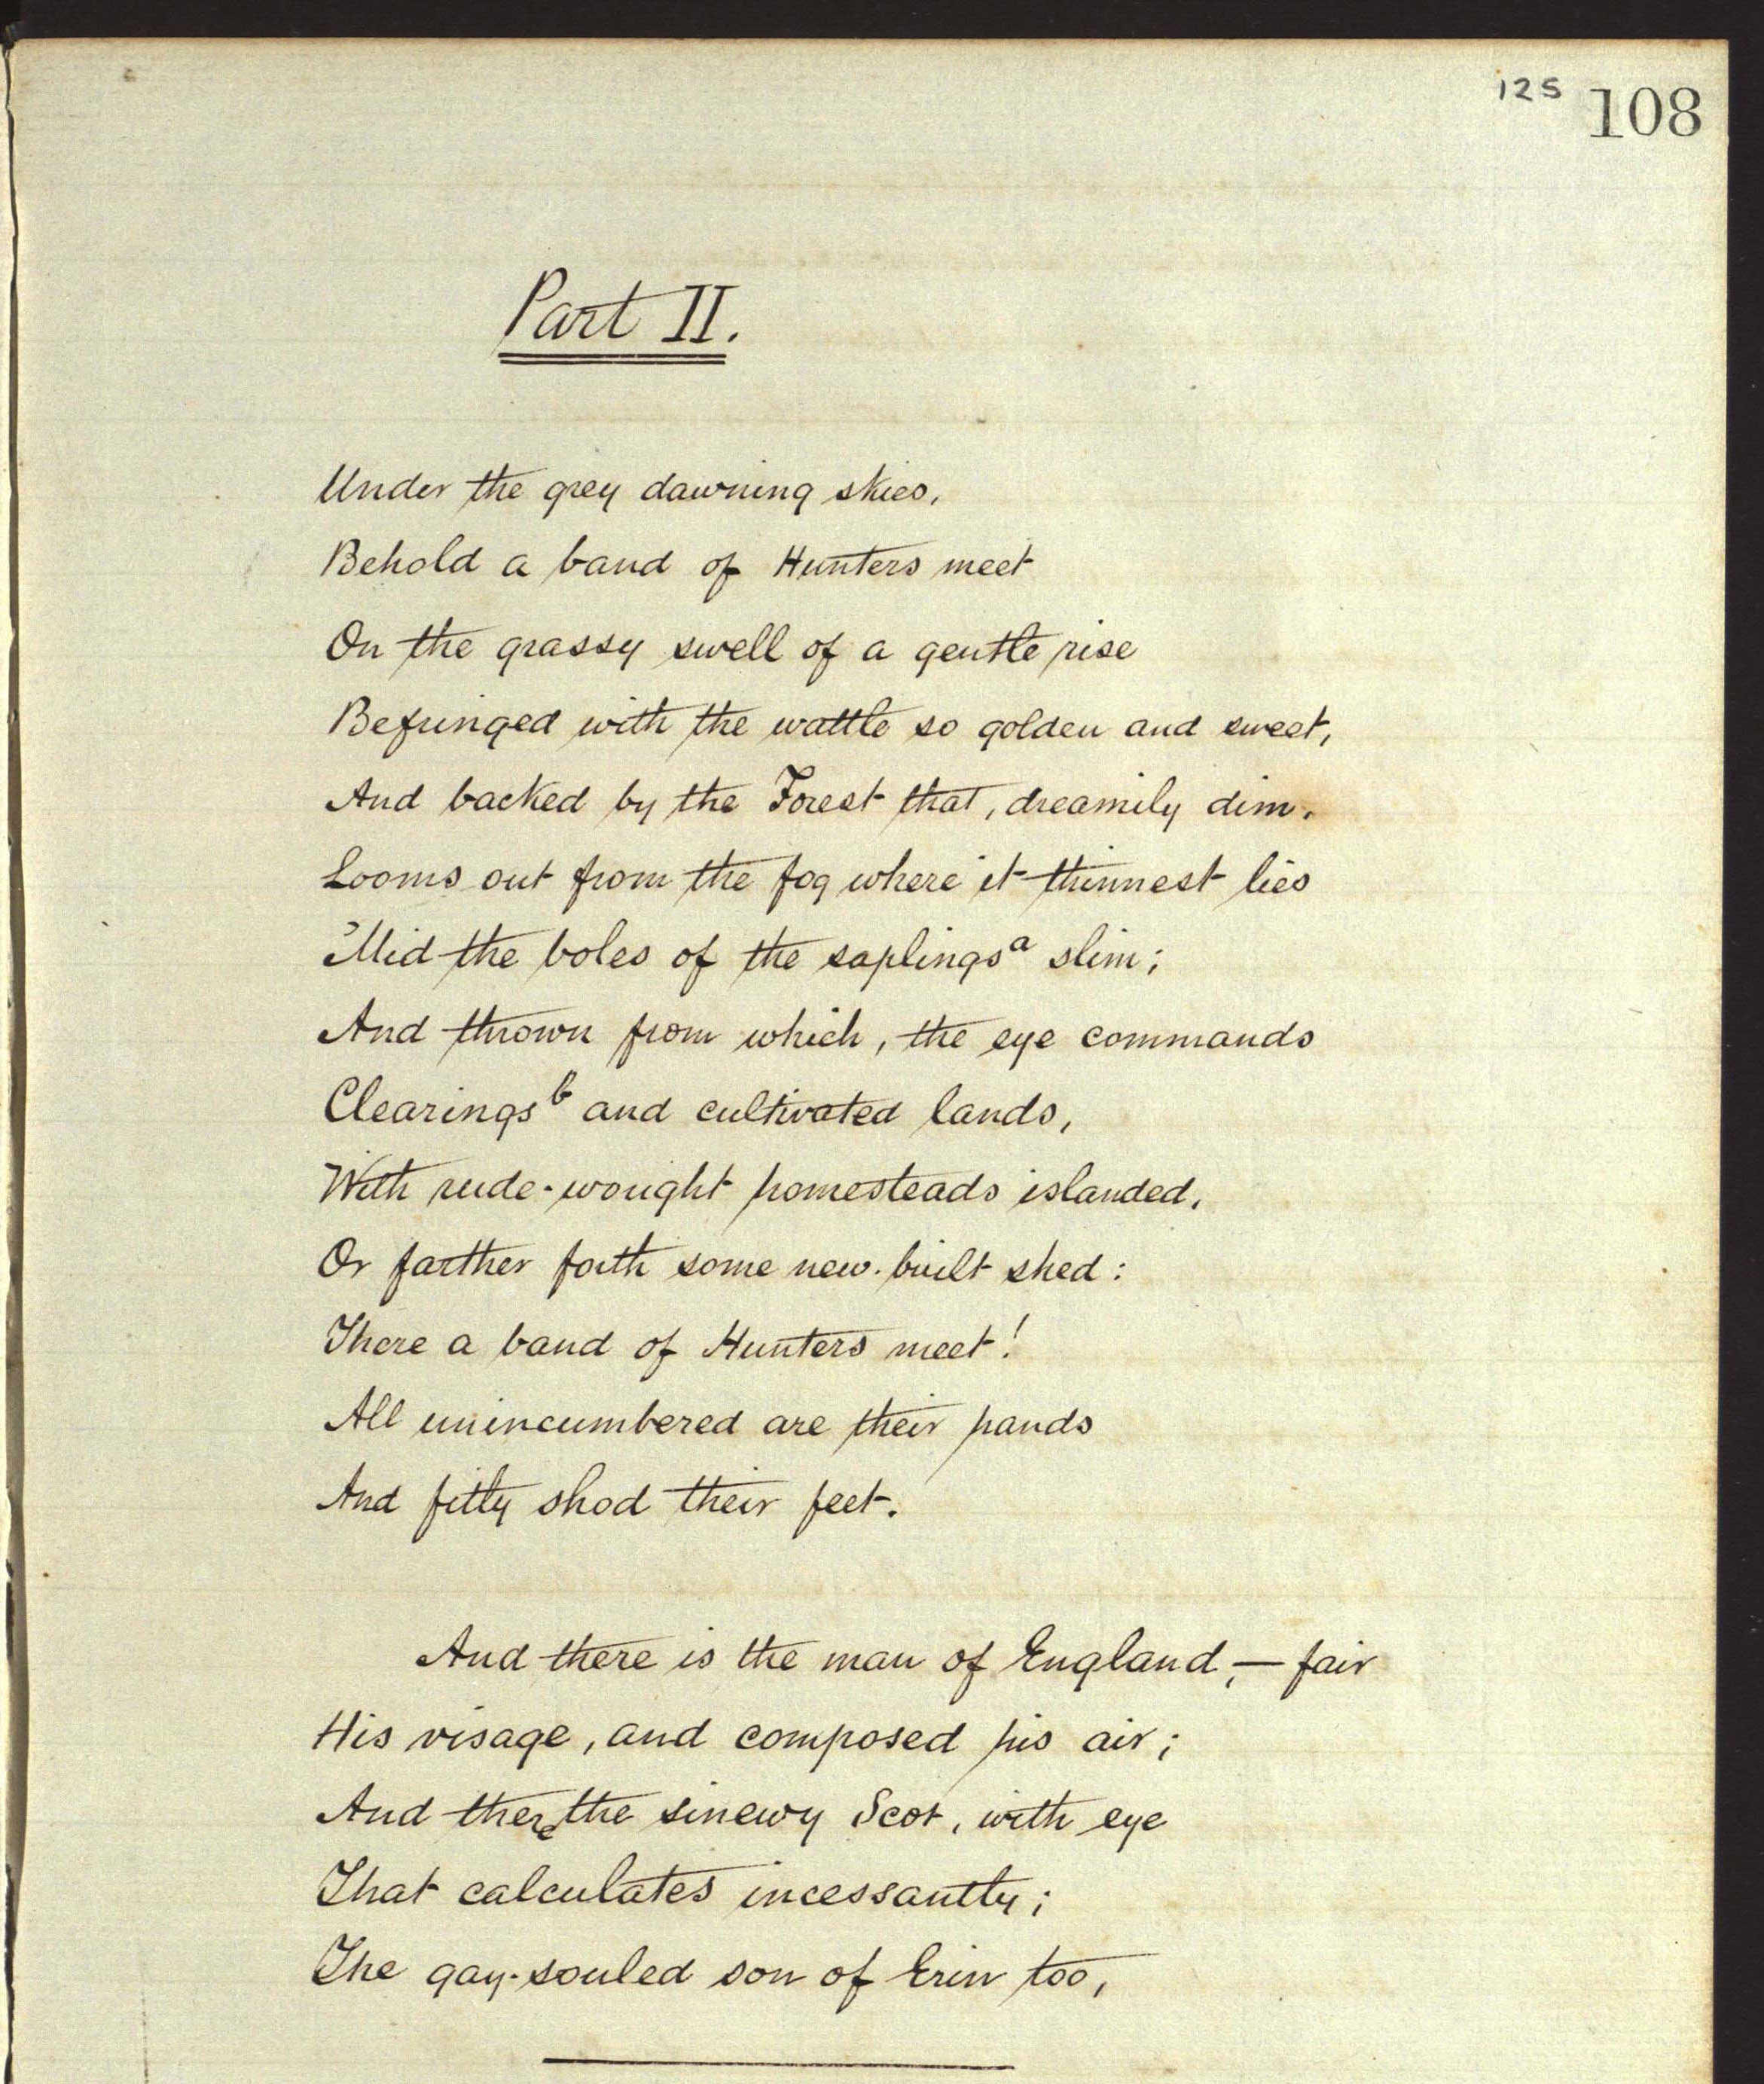 125 108
Part II.
Under the grey dawning skies,
Behold a band of Hunters meet
On the grassy swell of a gentle rise
Befringed with the wattle so golden and sweet,
And backed by the Forest that, dreamily dim,
Looms out from the fog where it thinnest lies
'Mid the boles of the saplingsᵃ slim;
And thrown from which, the eye commands
Clearingsᵇ and cultivated lands,
With rude-wrought homesteads islanded,
Or farther forth some new-built shed:
There a band of Hunters meet!
All unincumbered are their hands
And fitly shod their feet.
And there is the man of England,— fair
His visage, and composed his air;
And there the sinewy Scot, with eye
That calculates incessantly;
The gay-souled son of Erin too,